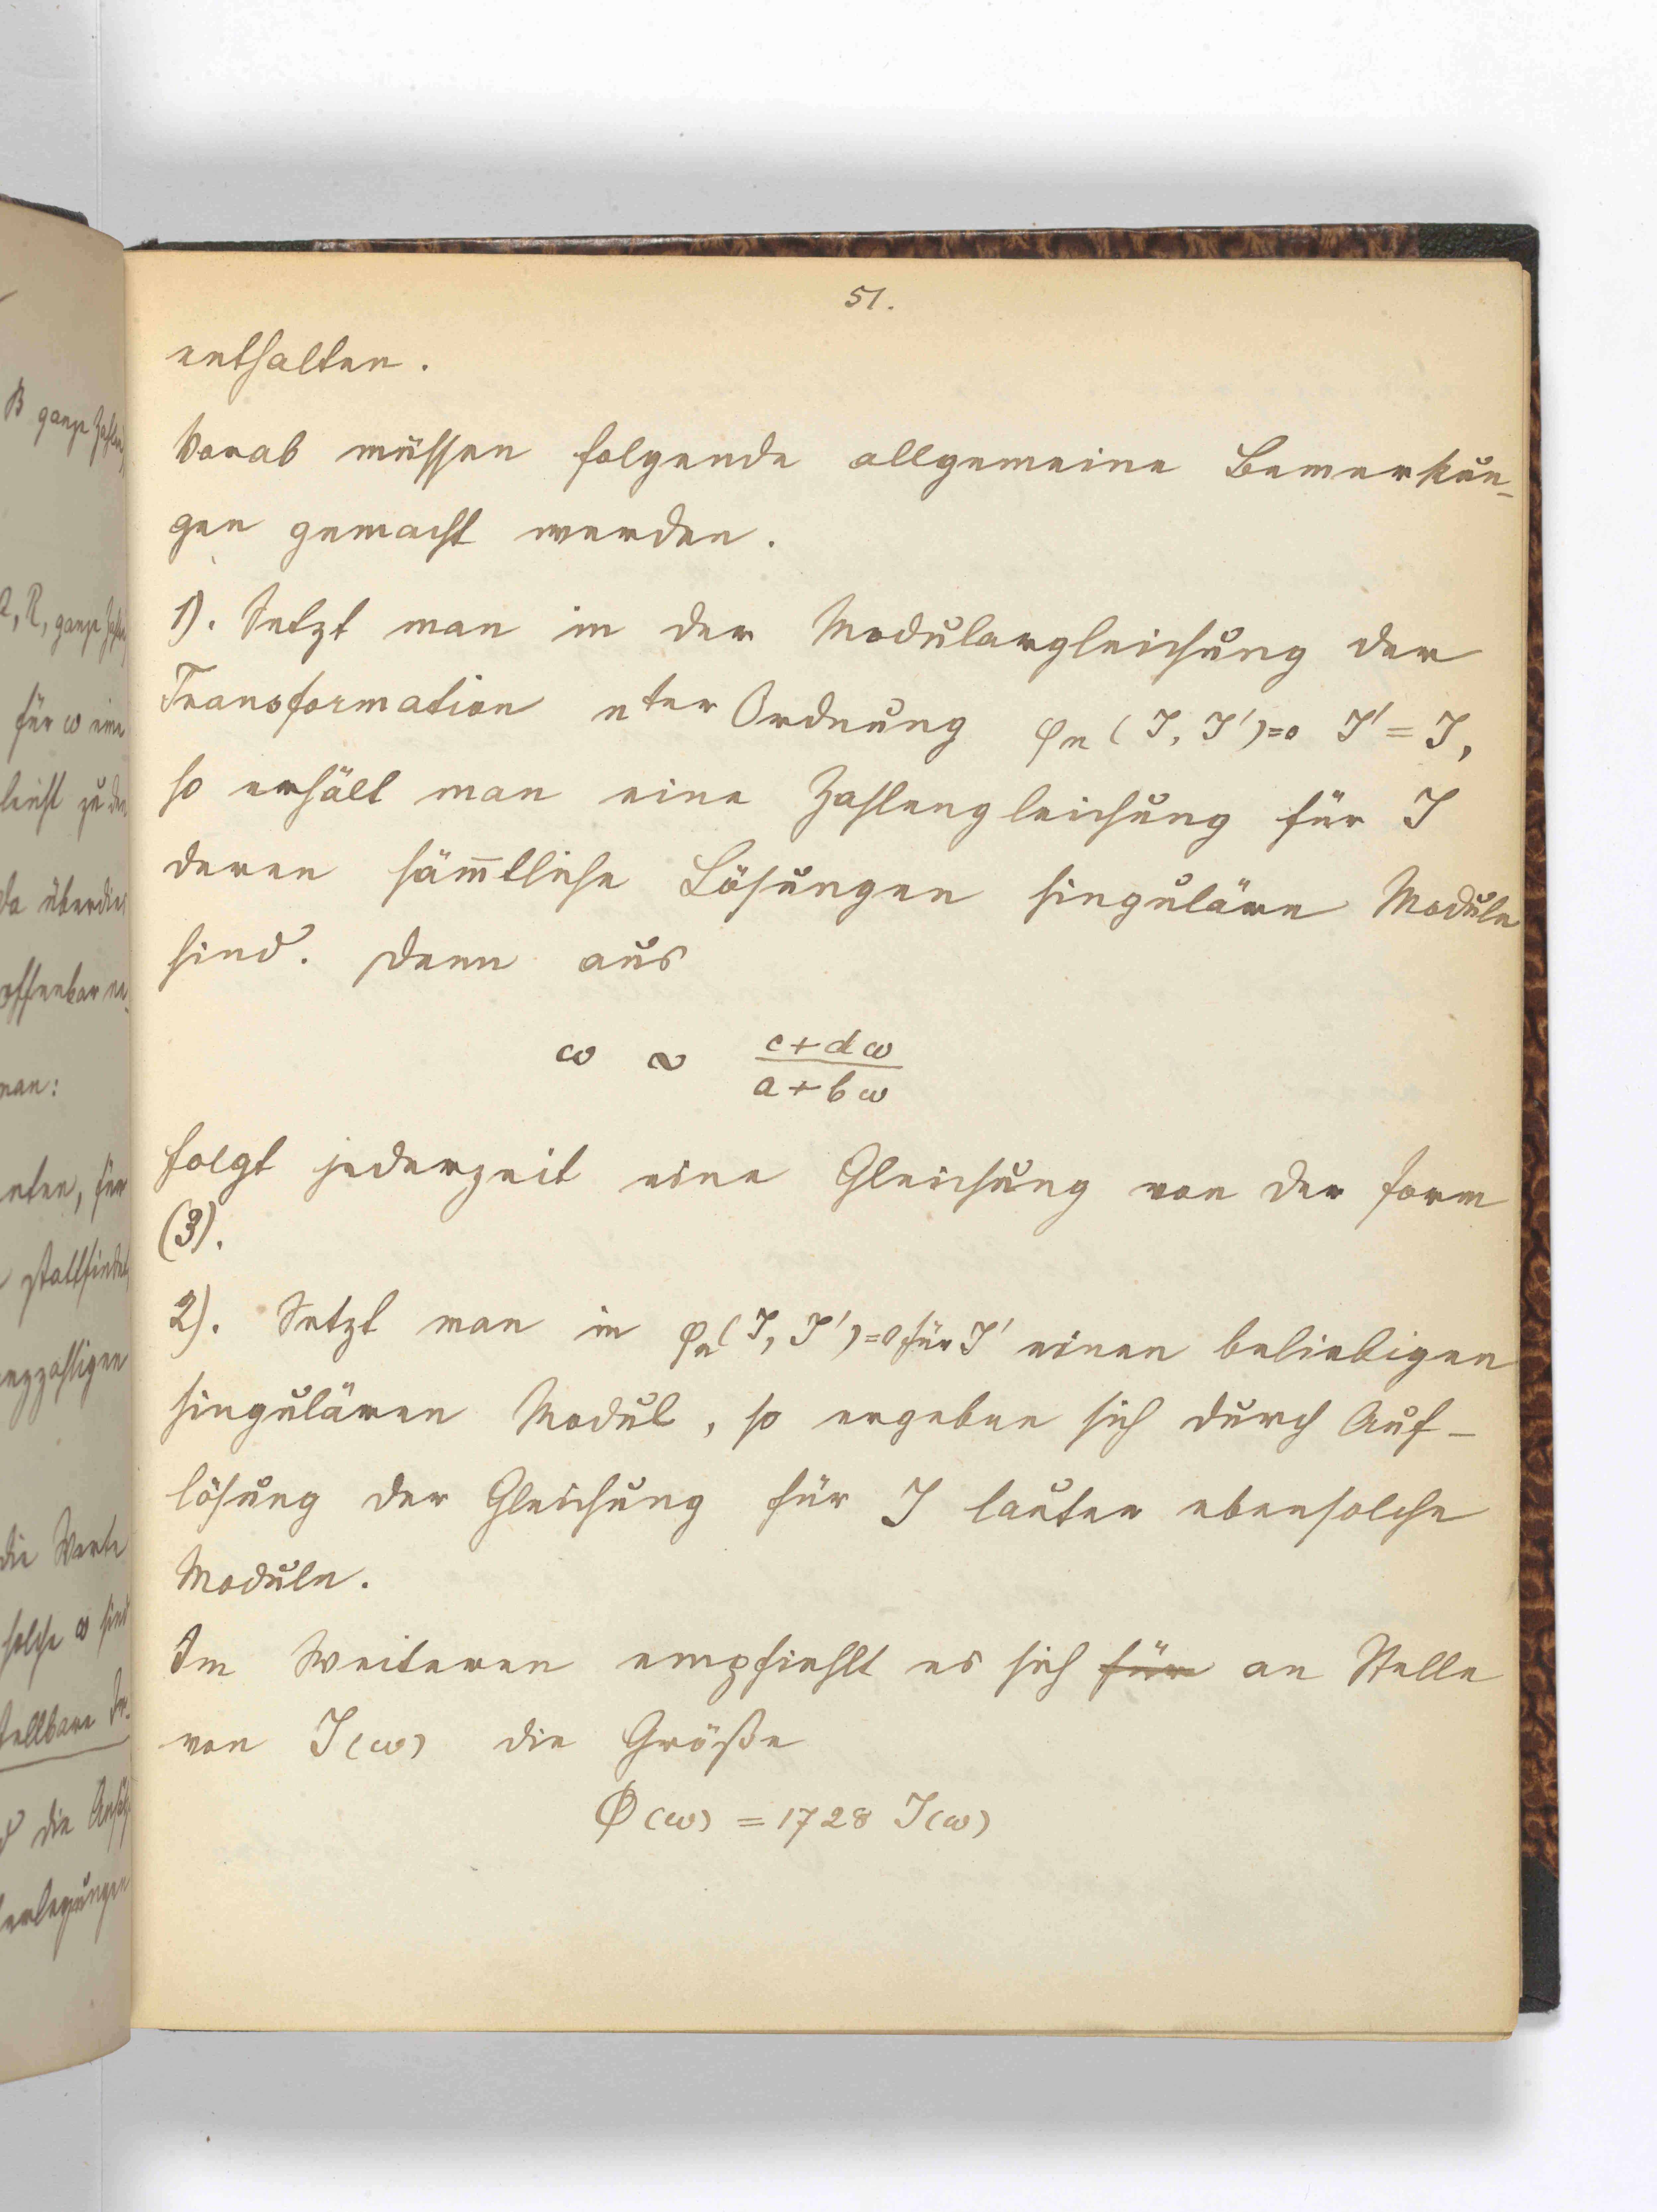 51.
enthalten.
Vorab müssen folgende allgemeine Bemerkun-
gen gemacht werden.
1). Setzt man in der Modulargleichung der
Transformation nter Ordnung φn (J, J')=0 J' = J,
so erhält man eine Zahlengleichung für J
deren säm̅tliche Lösungen singuläre Moduln
sind. Denn aus
ω ∾ c+dω
a+bω
folgt jederzeit eine Gleichung von der Form
(3).
2). Setzt man in φn(J, J')=0 für J' einen beliebigen
singulären Modul, so ergeben sich durch Auf-
lösung der Gleichung für J lauter ebensolche
Moduln.
Im Weiteren empfiehlt es sich für an Stelle
von J(ω) die Größe
Φ(ω) = 1728 J(ω)
B ganze Zahlen
Q, R, ganze Zahlen
für ω eine
leicht zu den
da überdies
offenbar
man:
für
stattfindet
ganzzahligen
die Werte
solche ω sind
die